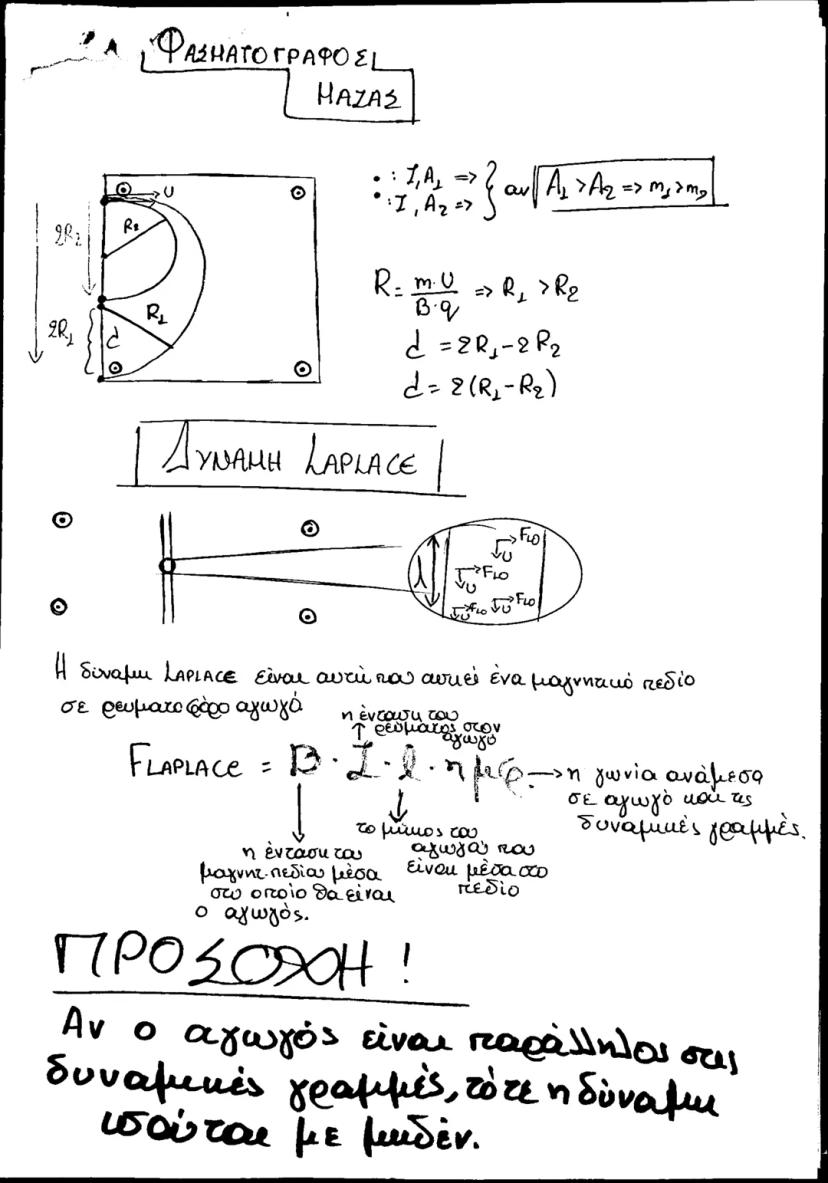 ΦΑΣΜΑΤΟΓΡΑΦΟΣ
ΜΑΖΑΣ
• : I, A₁ =>
• : I, A₂ =>
αν A₁ > A₂ => m₁ > m₂
υ
R₂
2R₂
R₁
2R₁
d
R = m·υ / B·q => R₁ > R₂
d = 2R₁ - 2R₂
d = 2(R₁ - R₂)
ΔΥΝΑΜΗ LAPLACE
l
FLO
υ
FLO
υ
FLO
υ
FLO
υ
Η δύναμη LAPLACE είναι αυτή που ασκεί ένα μαγνητικό πεδίο
σε ρευματοφόρο αγωγό
η ένταση του
ρεύματος στον
αγωγό
FLAPLACE = B · I · l · ημφ
η γωνία ανάμεσα
σε αγωγό και τις
δυναμικές γραμμές.
το μήκος του
αγωγού που
είναι μέσα στο
πεδίο
η ένταση του
μαγνητ. πεδίου μέσα
στο οποίο θα είναι
ο αγωγός.
ΠΡΟΣΟΧΗ!
Αν ο αγωγός είναι παράλληλος στις
δυναμικές γραμμές, τότε η δύναμη
ισούται με μηδέν.